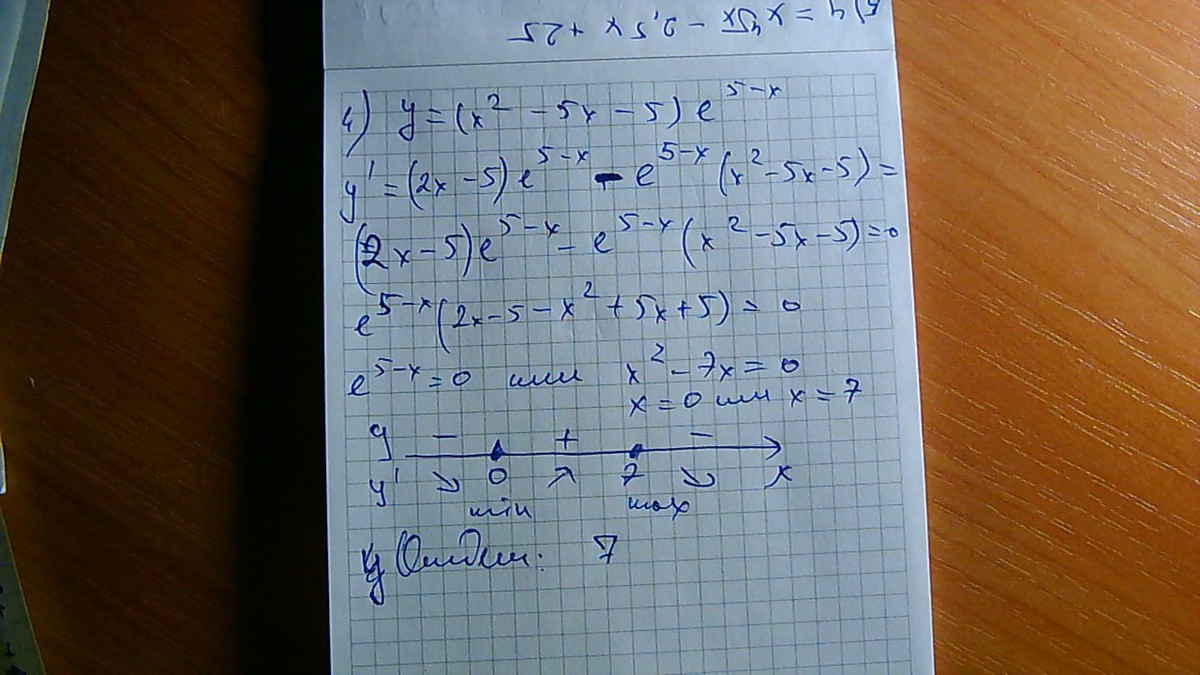 y = x√x - 2,5x + 25
4) y = (x² - 5x - 5) e⁵⁻ˣ
y' = (2x - 5) e⁵⁻ˣ - e⁵⁻ˣ (x² - 5x - 5) =
(2x - 5) e⁵⁻ˣ - e⁵⁻ˣ (x² - 5x - 5) = 0
e⁵⁻ˣ (2x - 5 - x² + 5x + 5) = 0
e⁵⁻ˣ = 0 или x² - 7x = 0
x = 0 или x = 7
y - + -
y' ↘ 0 ↗ 7 ↘ x
min max
Ответ: 7